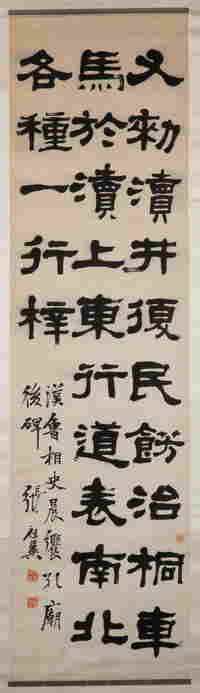 又勑瀆井復民餝治桐車
馬於瀆上東行道表南北
各種一行梓
漢魯相史晨饗孔廟
後碑 張祖翼